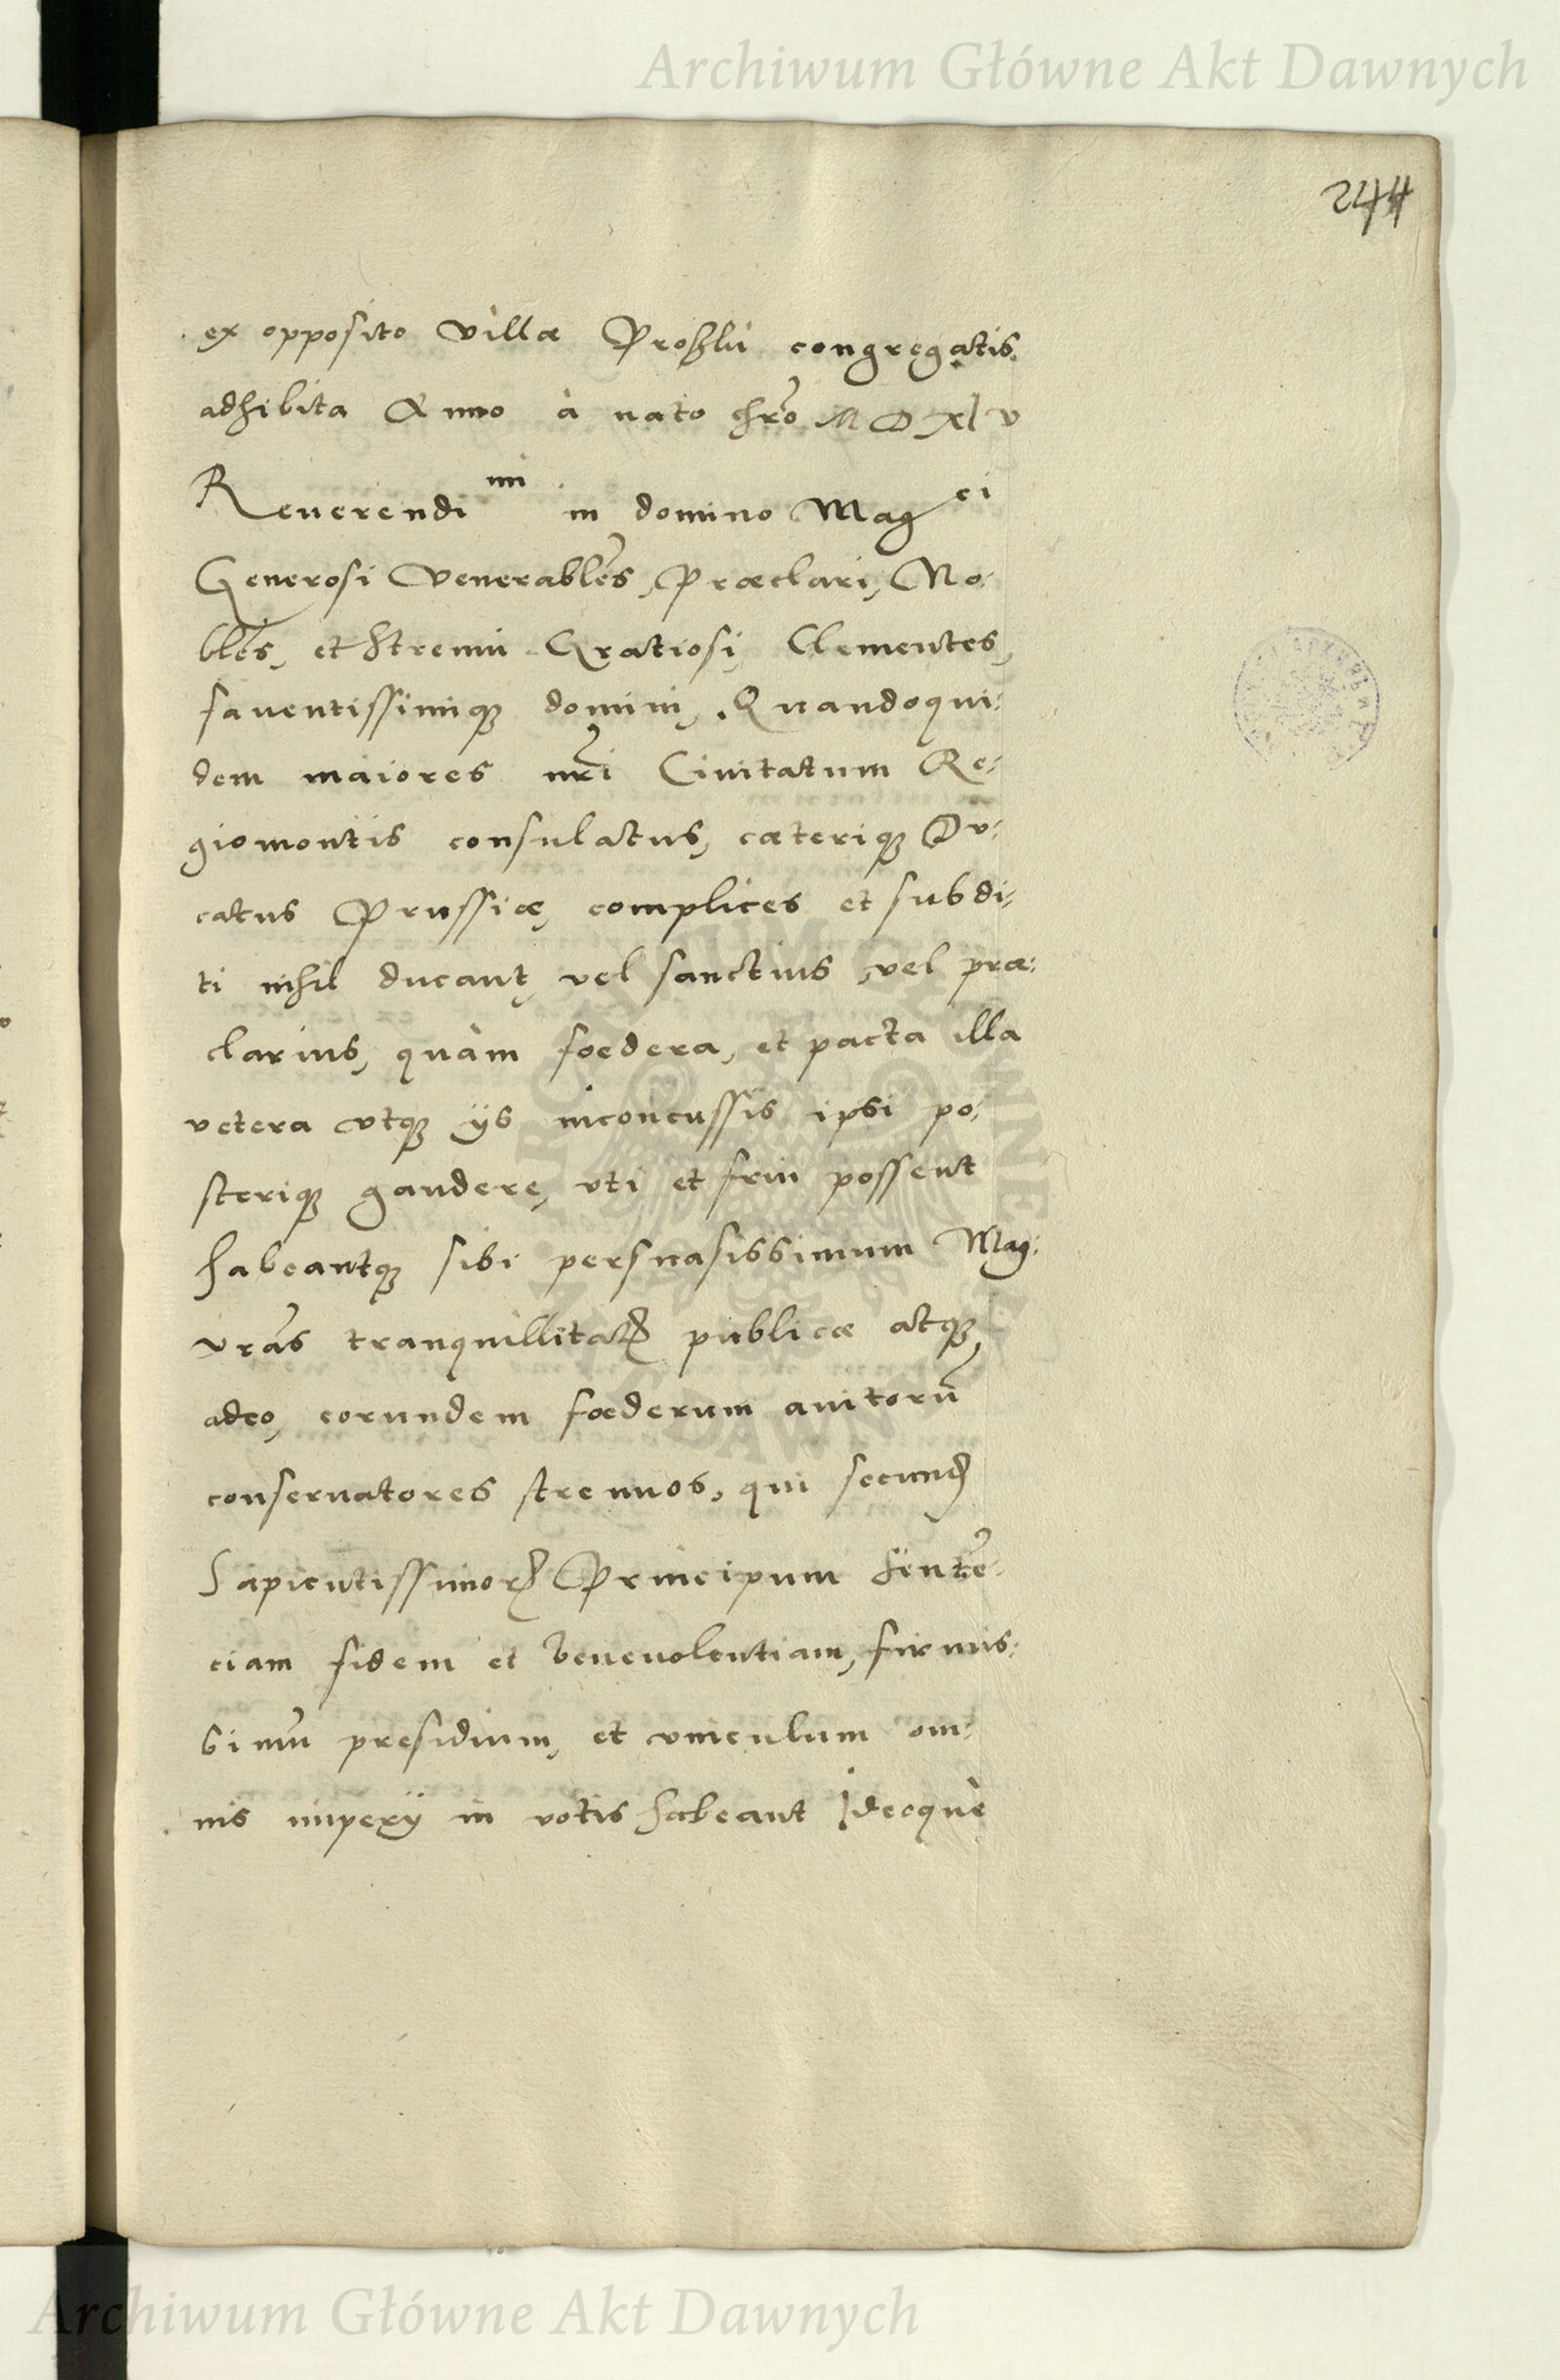 Archiwum Główne Akt Dawnych
244
ex opposito villæ Proßlii congregatis
adhibita Anno à nato chr̃o MDXlv
Reverendi^mi in domino Mag^ci
Generosi Venerabl̃es, Præclari, No:
bl̃es, et Strenui Gratiosi, Clementes,
faventissimiq; domini, Quandoqui:
dem maiores nr̃i Civitatum Re:
giomontis consulatus, cæteriq; Du:
catus Prussiæ, complices et subdi:
ti nihil ducant, vel sanctius, vel præ:
clarius, quàm fœdera, et pacta illa
vetera vtq; ijs inconcussis ipsi po:
steriq; gaudere, vti et frui possent
habeantq; sibi persuasissimum Mag:
vrãs tranquillitatꝭ publicæ atq;
adeo, eorundem fœderum avitorũ
conservatores strenuos, qui secundꝭ
Sapientissimoꝝ Principum senten:
ciam fidem et benevolentiam, firmis:
simũ presidium, et vinculum om:
nis imperij in votis habeant Ideoquè
Archiwum Główne Akt Dawnych